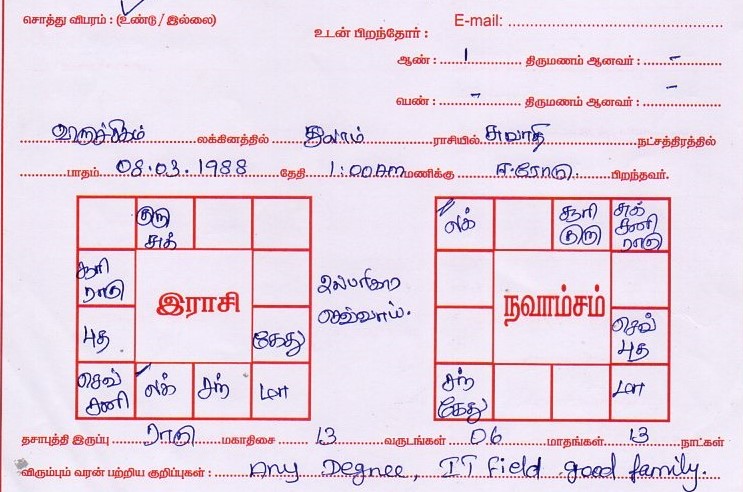 சொத்து விபரம் : (உண்டு / இல்லை)
E-mail:
உடன் பிறந்தோர் :
ஆண் : 1 திருமணம் ஆனவர் : -
பெண் : - திருமணம் ஆனவர் : -
விருச்சிகம் லக்கினத்தில் துலாம் ராசியில் சுவாதி நட்சத்திரத்தில்
பாதம் 08.03.1988 தேதி 1:00AM மணிக்கு ஈரோடு. பிறந்தவர்.
குரு சுக்
லக் சூரி குரு சுக் சனி ராகு
சூரி ராகு
இராசி
செவ்வாய்.
நவாம்சம்
புத கேது
செவ் புத
செவ் சனி லக் சந் மா
சந் கேது மா
தசாபுத்தி இருப்பு ராகு மகாதிசை 13 வருடங்கள் 06 மாதங்கள் 13 நாட்கள்
விரும்பும் வரன் பற்றிய குறிப்புகள் : Any Degree, IT field good family.